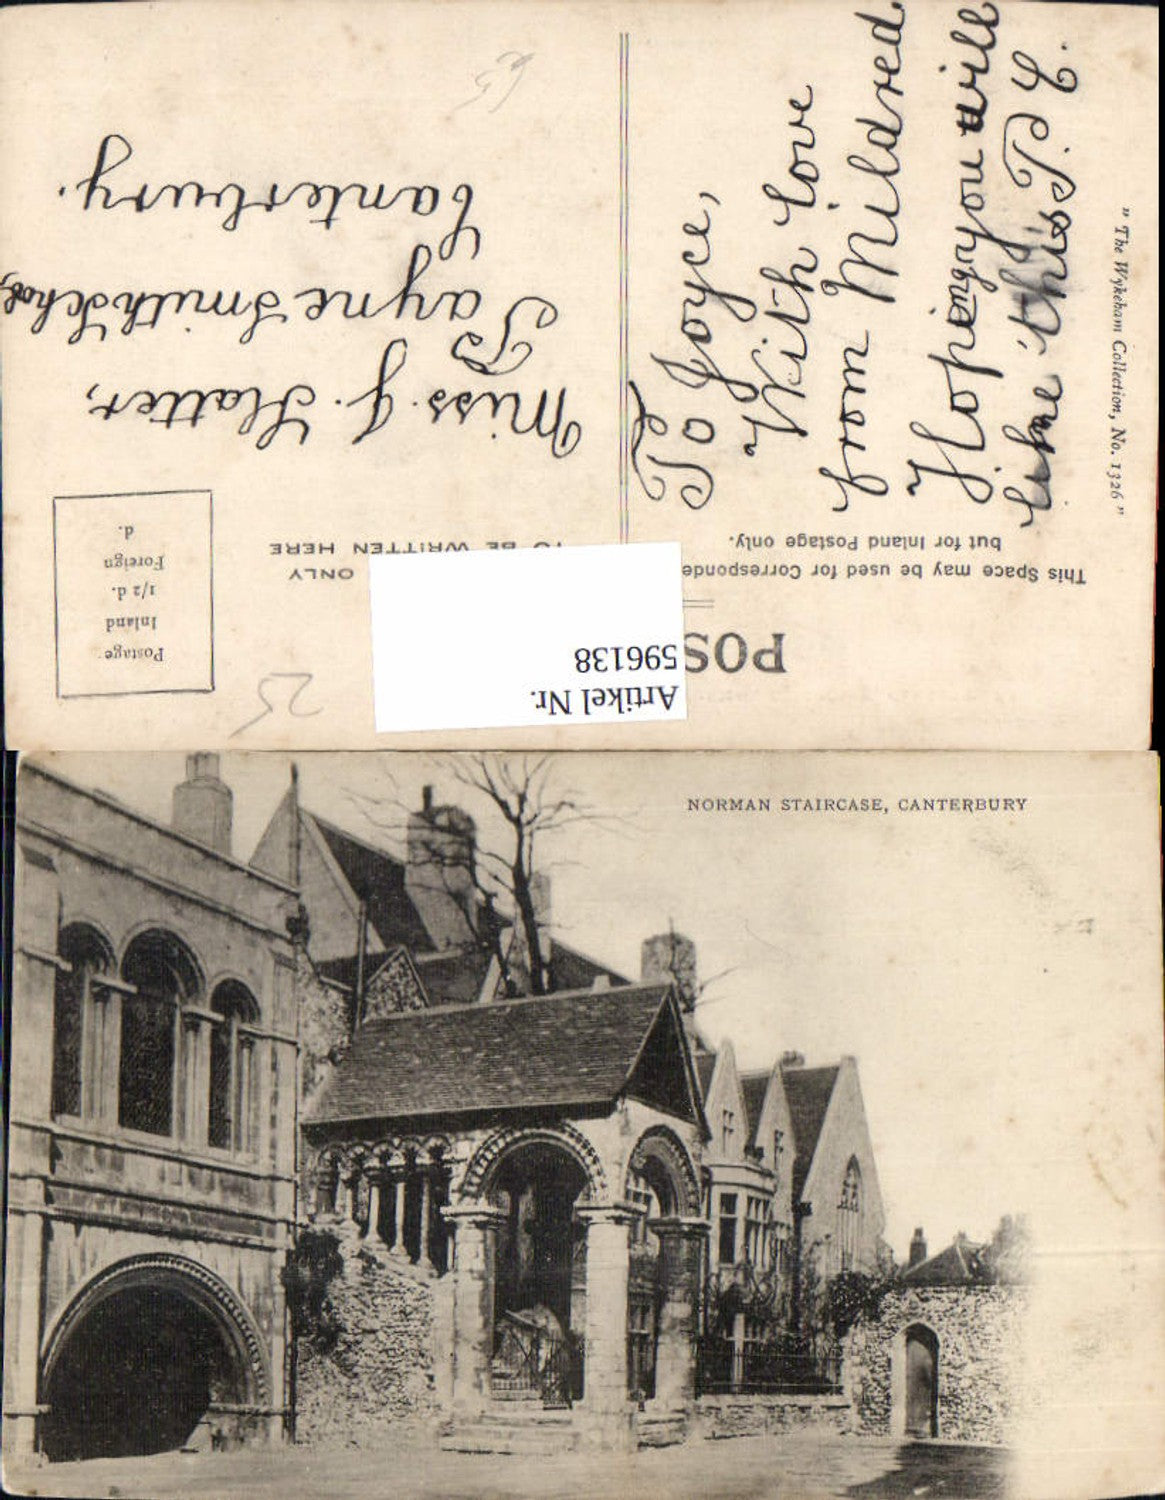 POS
This Space may be used for Corresponde
but for Inland Postage only.
ONLY
TO BE WRITTEN HERE
Postage.
Inland
1/2 d.
Foreign
d.
Artikel Nr.
596138
25
To Joyce,
With love
from Mildred
Hoping you will
like this P.C.
Miss. J. Slatter,
Payne Smith School,
Canterbury.
59
" The Wykeham Collection, No. 1326 "
NORMAN STAIRCASE, CANTERBURY